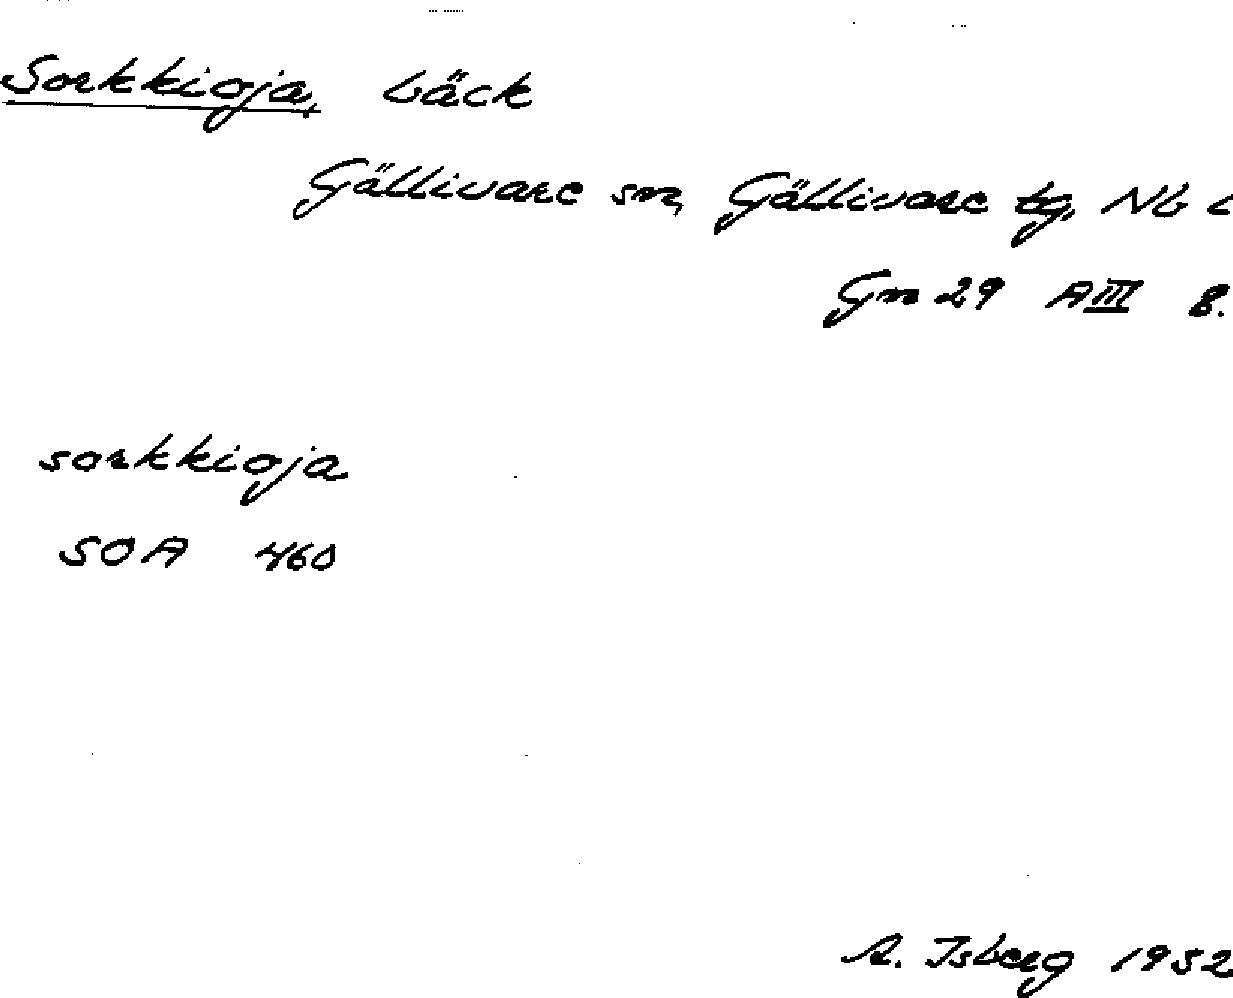 Sorkkioja, bäck
Gällivare sn, Gällivare tg, Nb L
Gm 29 A III 8.
sorkkioja
SOA 460
A. Isberg 1952